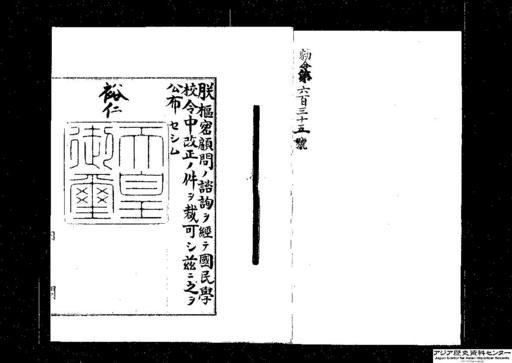 勅令第六百三十五號
朕樞密顧問ノ諮詢ヲ經テ國民學
校令中改正ノ件ヲ裁可シ茲ニ之ヲ
公布セシム
裕仁
天皇
御璽
アジア歴史資料センター
Japan Center for Asian Historical Records